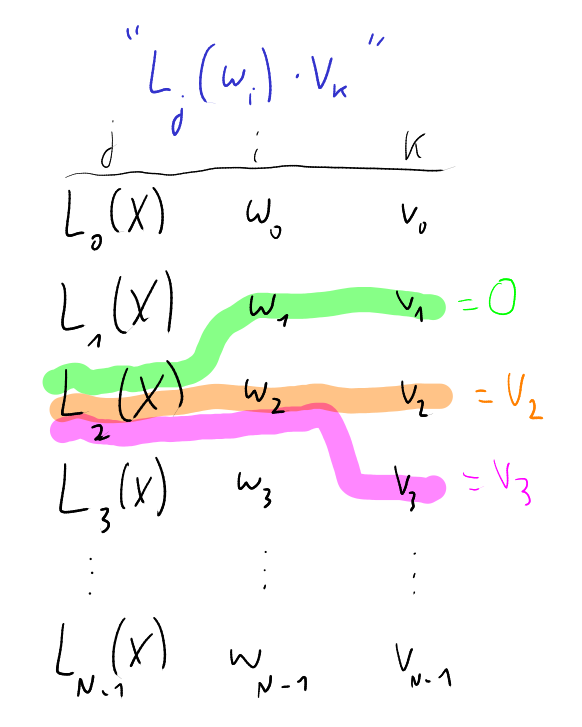 "L_j(w_i) · V_k"
j i k
L_0(X) w_0 v_0
L_1(X) w_1 v_1 = 0
L_2(X) w_2 v_2 = V_2
L_3(X) w_3 v_3 = V_3
⋮ ⋮ ⋮
L_{N-1}(X) w_{N-1} v_{N-1}